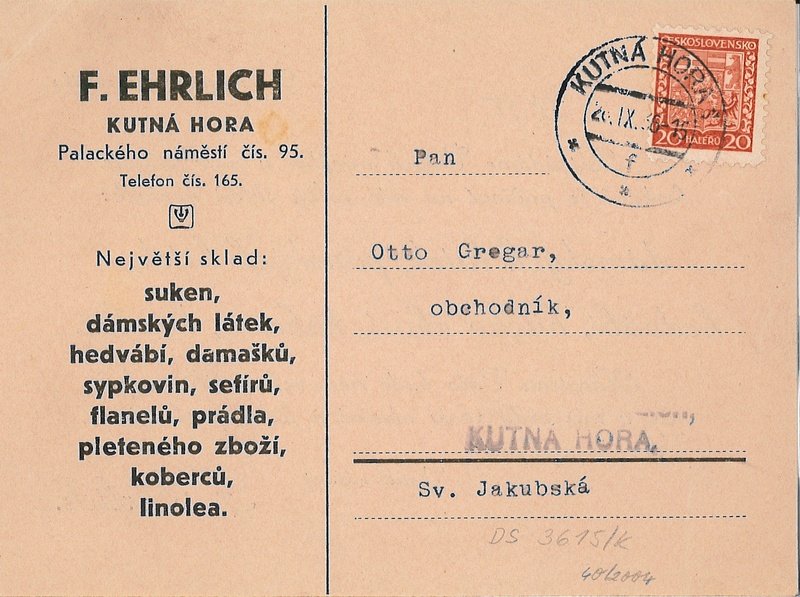 F. EHRLICH
KUTNÁ HORA
Palackého náměstí čís. 95.
Telefon čís. 165.
Největší sklad:
suken,
dámských látek,
hedvábí, damašků,
sypkovin, sefírů,
flanelů, prádla,
pleteného zboží,
koberců,
linolea.
ČESKOSLOVENSKO
20 HALÉŘŮ 20
KUTNÁ HORA
f
Pan
Otto Gregar,
obchodník,
KUTNÁ HORA,
Sv. Jakubská
DS 3615/K
40/2004